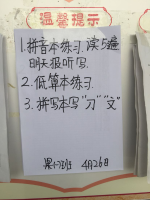 温馨提示
1.拼音本练习.读5遍
明天报听写.
2.低算本练习.
3.拼写本写“刀”“文”
4月26日